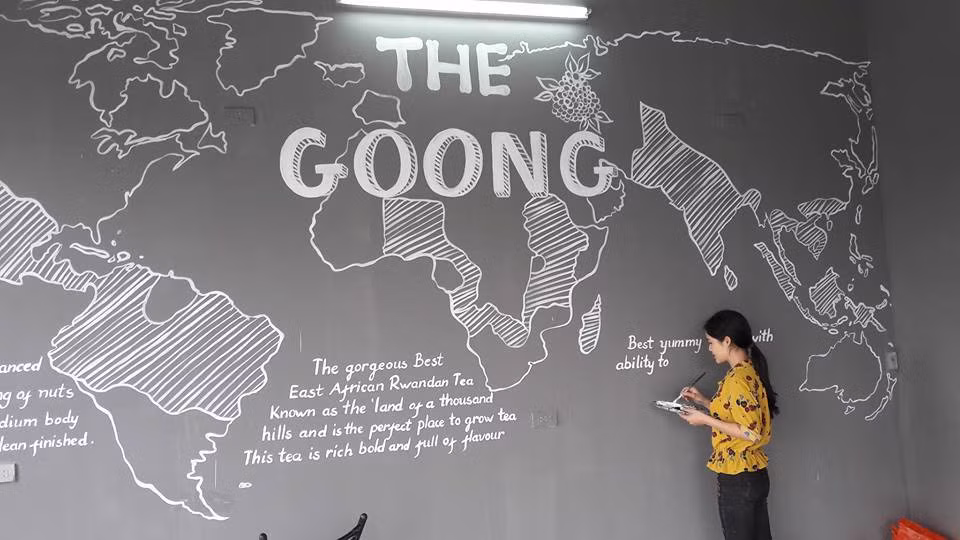 THE
GOONG
anced
ng of nuts
dium body
lean finished.
The gorgeous Best
East African Rwandan Tea
Known as the 'land of a thousand
hills and is the perfect place to grow tea
This tea is rich bold and full of flavour
Best yummy with
ability to